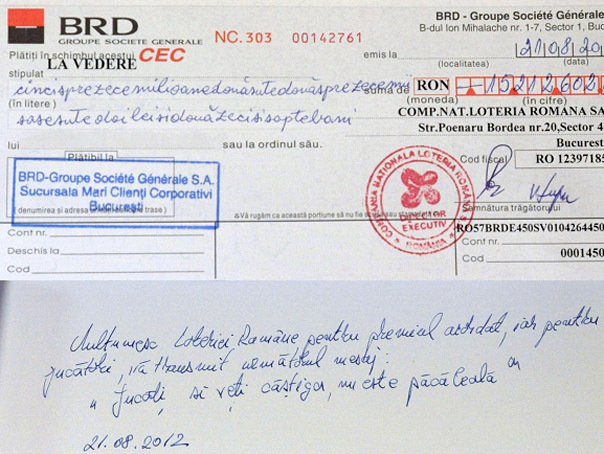 BRD
GROUPE SOCIETE GENERALE
NC.303 00142761
BRD - Groupe Société Générale
B-dul Ion Mihalache nr. 1-7, Sector 1, Bucu
Plătiți în schimbul acestui CEC
emis la 21 08 20
stipulat LA VEDERE
(localitatea) (data)
suma de RON 15212602
cincisprezecemilioanedouăsutedouăsprezecemii
(în litere)
(moneda) (în cifre)
șasesutedoileișidouăzecișișaptebani
COMP.NAT.LOTERIA ROMANA SA
Str.Poenaru Bordea nr.20,Sector 4
lui sau la ordinul său.
Bucuresti
Plătibil la
Cod fiscal RO 1239718
BRD-Groupe Société Générale S.A.
Sucursala Mari Clienți Corporativi
București
COMPANIA NATIONALA LOTERIA ROMANA SA
DIRECTOR
EXECUTIV
ROMÂNIA
(denumirea și adresa trase)
Vă rugăm ca această porțiune să nu fie
Semnătura trăgătorului
Cont nr.
RO57BRDE450SV0104264450
Deschis la
Cont nr.
Cod
Cod 0001450
Mulțumesc Loteriei Române pentru premiul acordat, iar pentru
jucători, vă transmit următorul mesaj:
" Jucați, și veți câștiga, nu este păcăleală "
21.08.2012